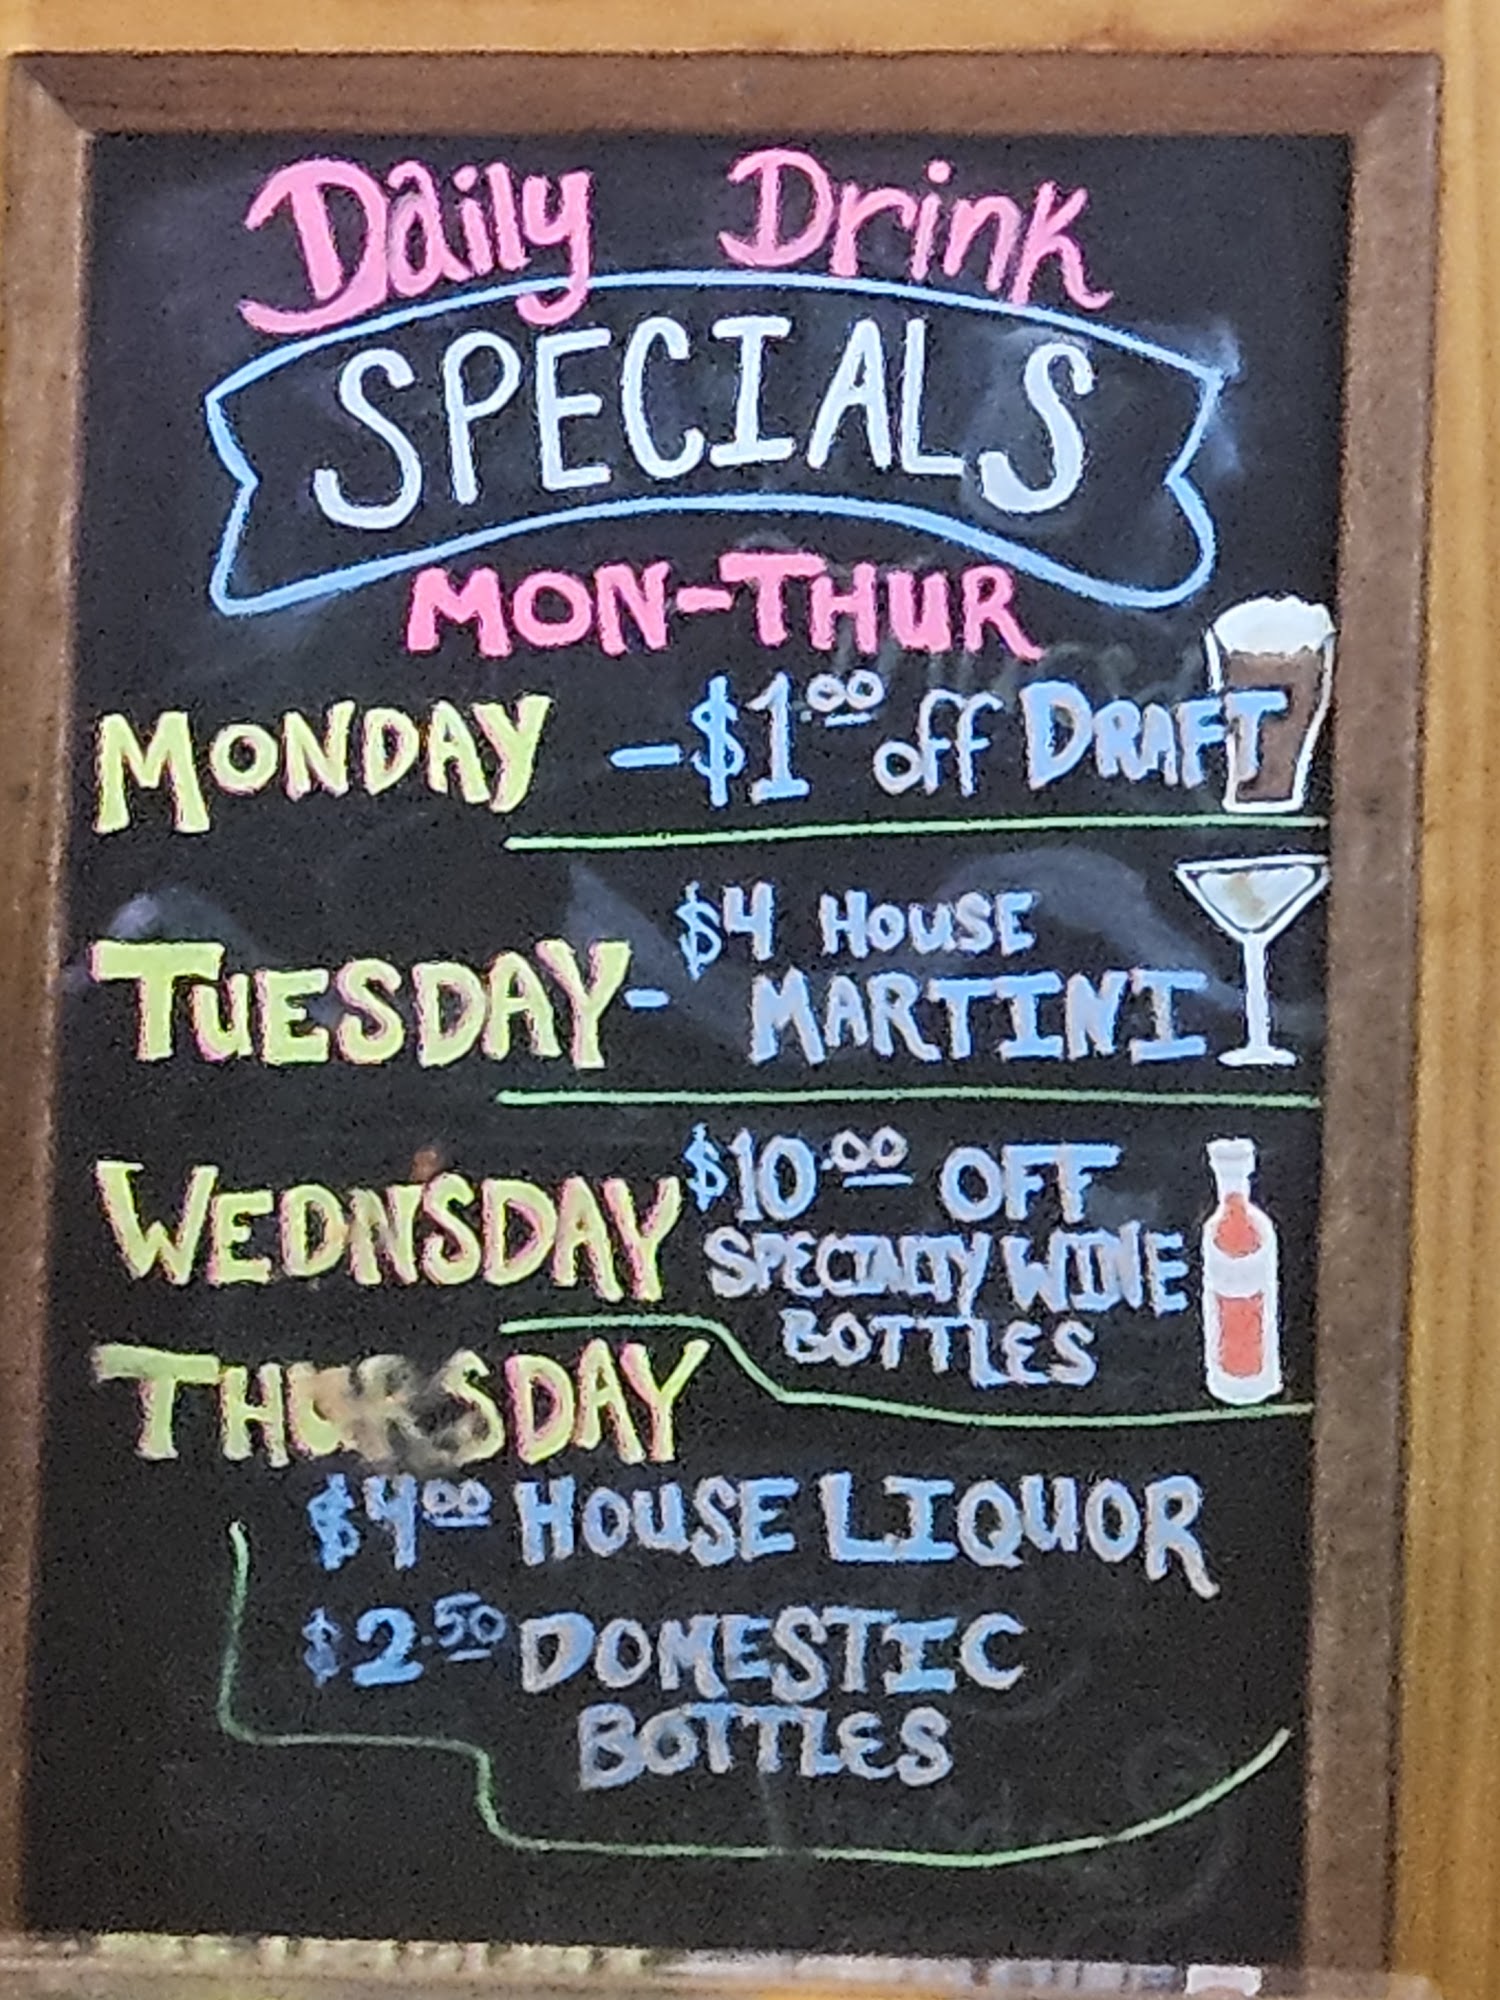 Daily Drink
SPECIALS
MON-THUR
MONDAY - $1.00 off DRAFT
TUESDAY - $4 HOUSE
MARTINI
WEDNSDAY $10.00 OFF
SPECIALTY WINE
BOTTLES
THURSDAY
$4.00 HOUSE LIQUOR
$2.50 DOMESTIC
BOTTLES